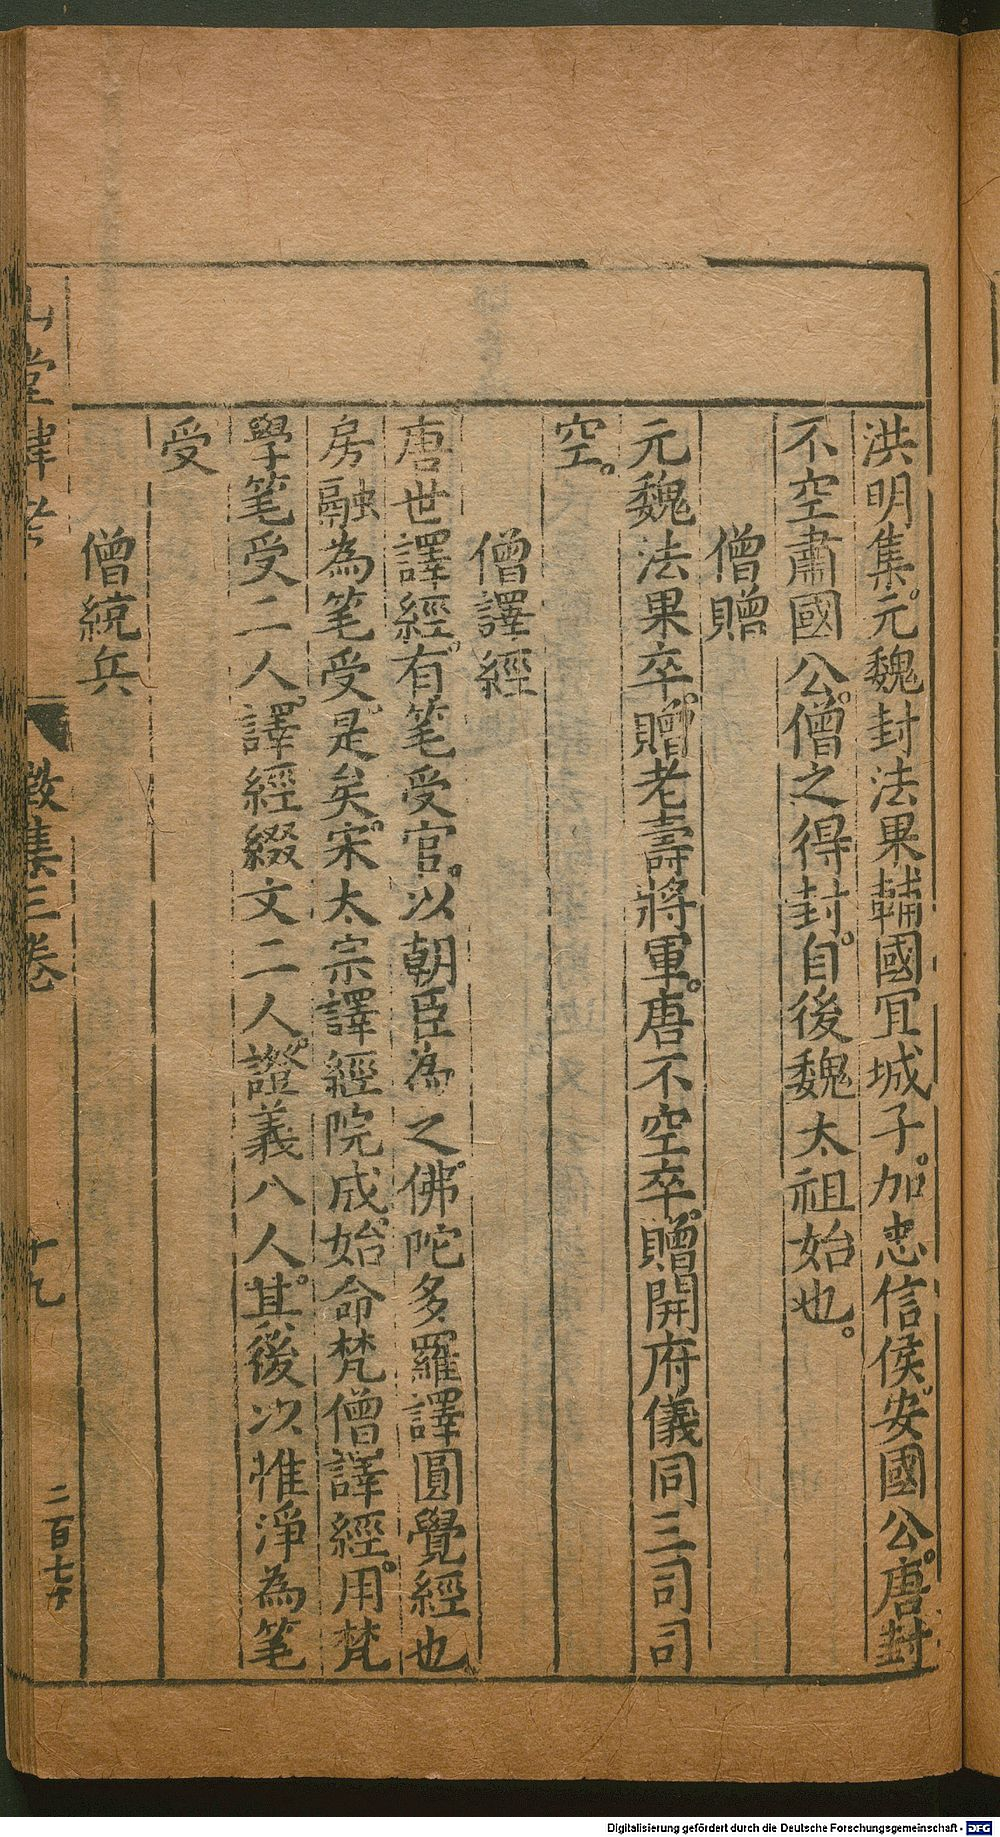 洪明集元魏封法果輔國冝城子加忠信侯安國公唐封
不空肅國公僧之得封自後魏太祖始也
僧贈
元魏法果卒贈老壽將軍唐不空卒贈開府儀同三司司
空
僧譯經
唐世譯經有筆受官以朝臣為之佛陀多羅譯圓覺經也
房融為筆受是矣宋太宗譯經院成始命梵僧譯經用梵
學筆受二人譯經綴文二人證義八人其後以惟淨為筆
受
僧統兵
山堂肆考
徵集三卷
十九
二百七十
Digitalisierung gefördert durch die Deutsche Forschungsgemeinschaft - DFG